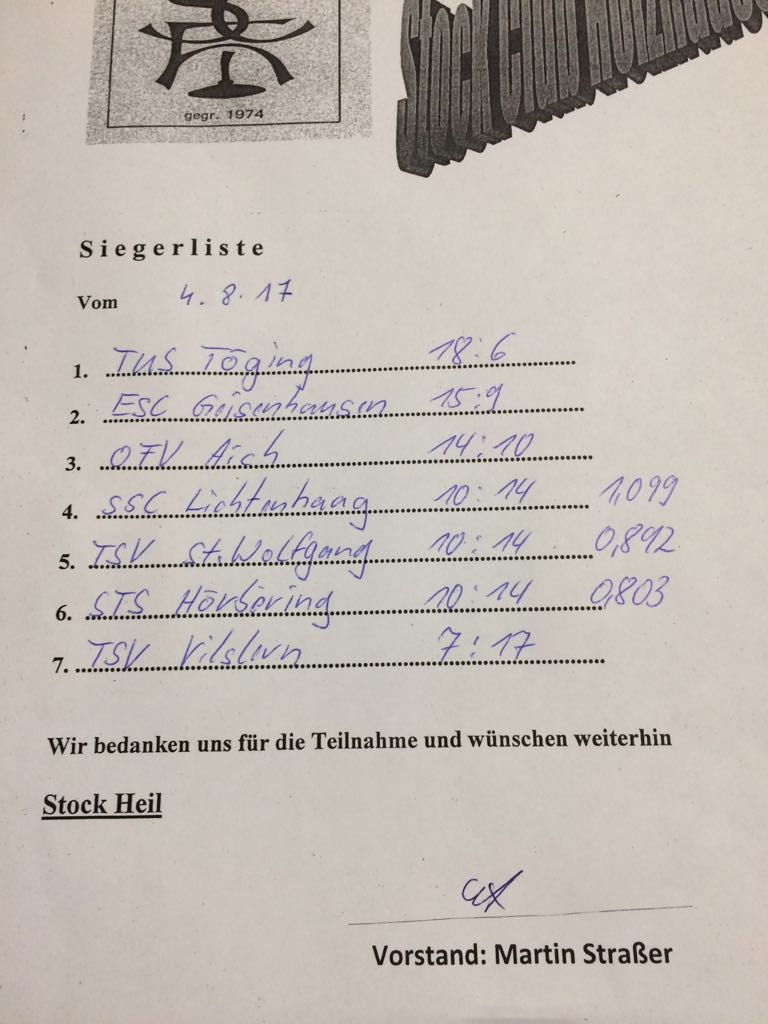 gegr. 1974
Stock Club
Siegerliste
Vom 4.8.17
1. TUS Töging 18:6
2. ESC Geisenhausen 15:9
3. OFV Aich 14:10
4. SSC Lichtenhaag 10:14 1,099
5. TSV St. Wolfgang 10:14 0,892
6. STS Hörbering 10:14 0,803
7. TSV Vilslern 7:17
Wir bedanken uns für die Teilnahme und wünschen weiterhin
Stock Heil
Vorstand: Martin Straßer